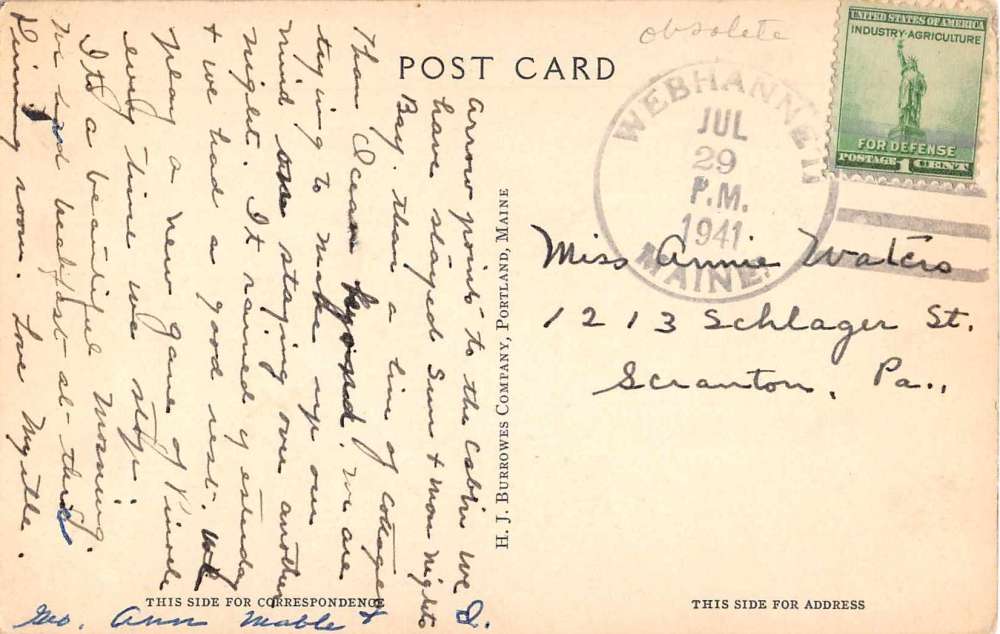 obsolete
POST CARD
UNITED STATES OF AMERICA
INDUSTRY-AGRICULTURE
FOR DEFENSE
POSTAGE 1 CENT
WEBHANNET
JUL
29
P.M.
1941
MAINE
Miss Annie Waters
1213 Schlager St.
Scranton, Pa.,
Arrow points to the cabin we
have stayed Sun + Mon nights
Bay, then a line of cottages
then Ocean beyond. We are
trying to make up our
mind staying over another
night. It rained yesterday
+ we had a good rest. We
play a new game of Pinocle
every time we stop.
It's a beautiful morning.
We had breakfast at this
Dining room. Love Myrtle.
Geo. Ann Mable + I.
H. J. BURROWES COMPANY, PORTLAND, MAINE
THIS SIDE FOR CORRESPONDENCE
THIS SIDE FOR ADDRESS